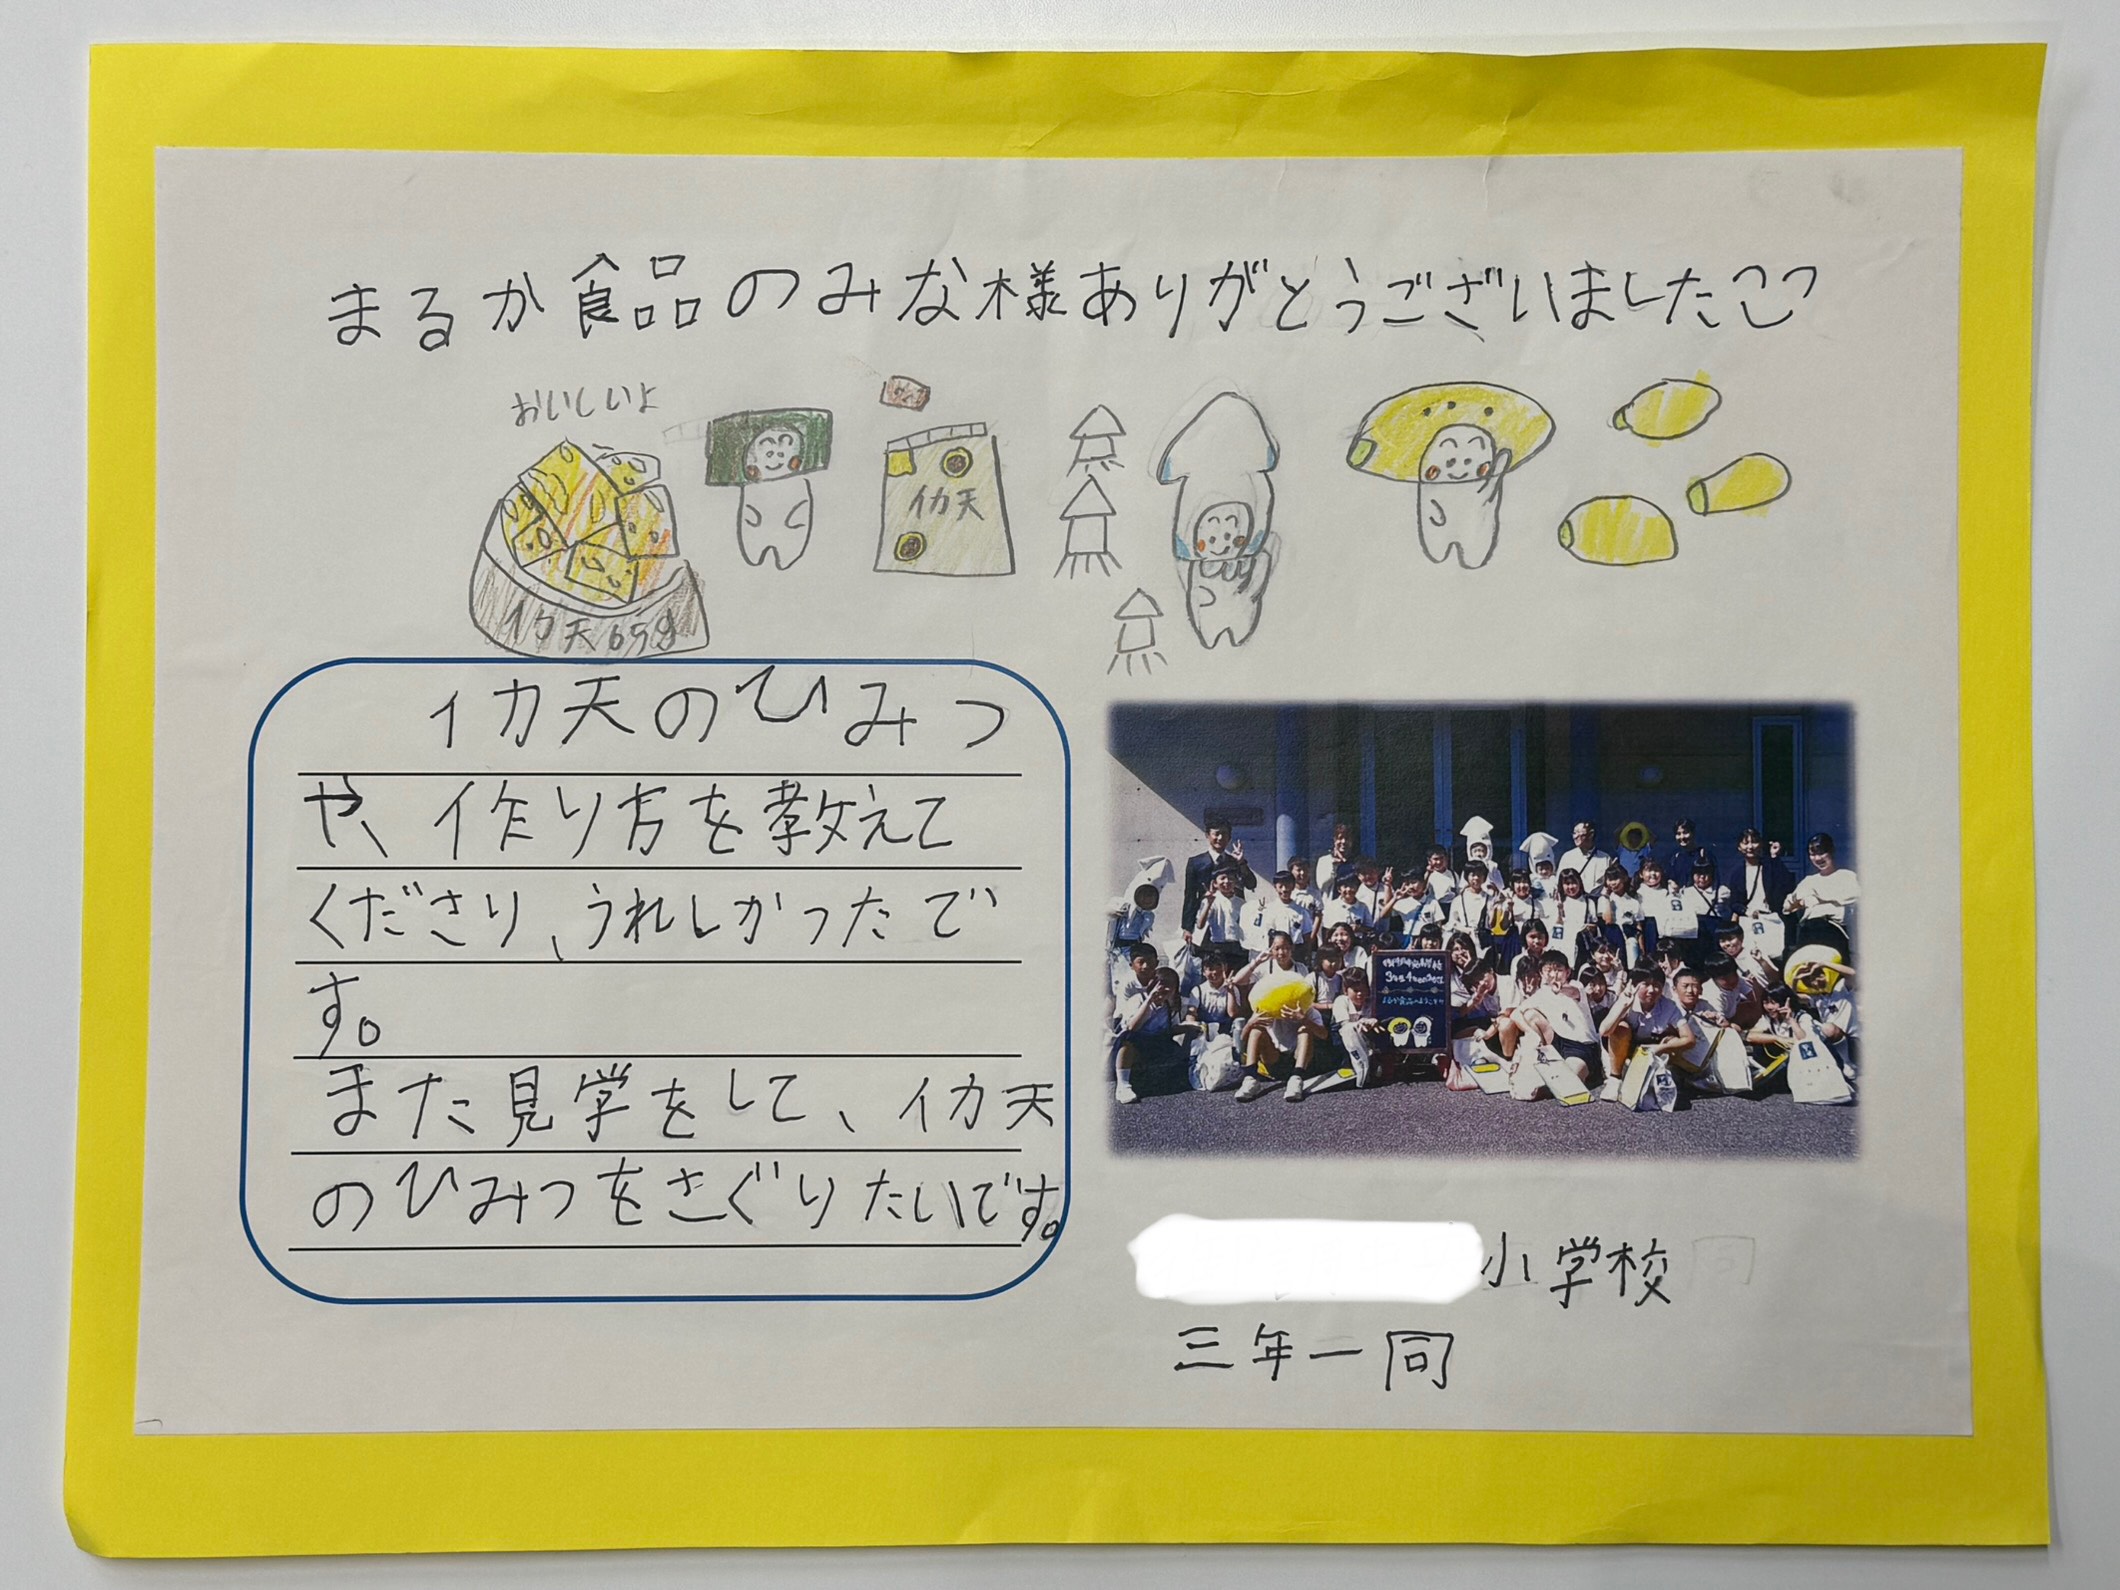 まるか食品のみな様ありがとうございました
おいしいよ
イカ天
イカ天65g
イカ天のひみつ
や、作り方を教えて
くださり、うれしかったで
す。
また見学をして、イカ天
のひみつをさぐりたいです。
3年生4年生のみなさん
まるか食品へようこそ
小学校
三年一同